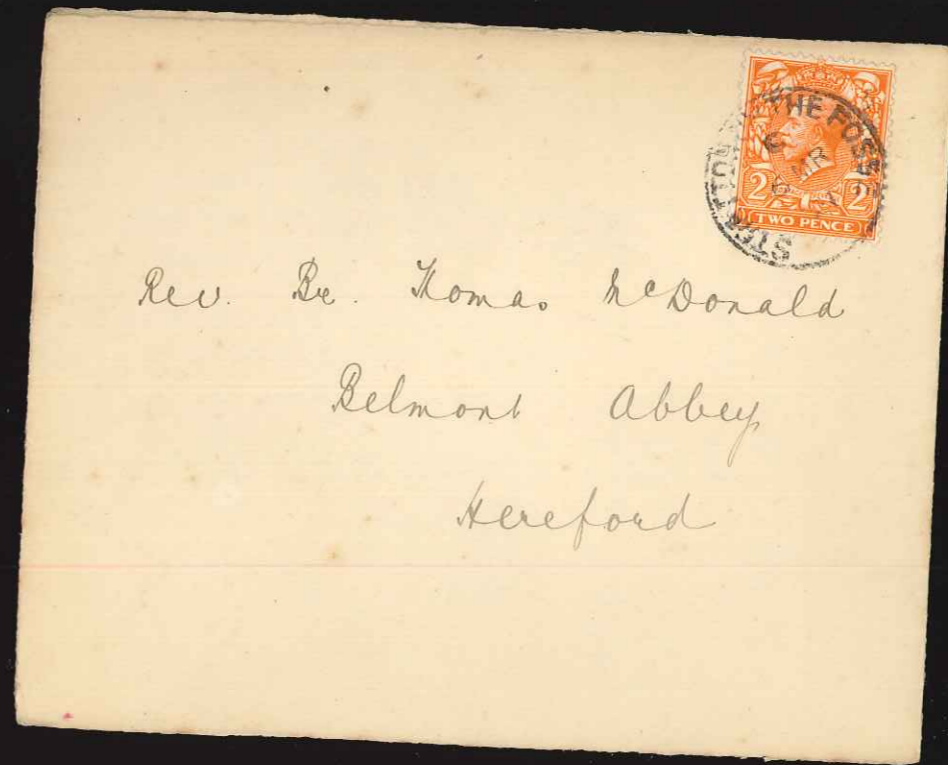 THE FOSSE
STRETTON
MR
2 2
TWO PENCE
Rev. Br. Thomas McDonald
Belmont Abbey
Hereford